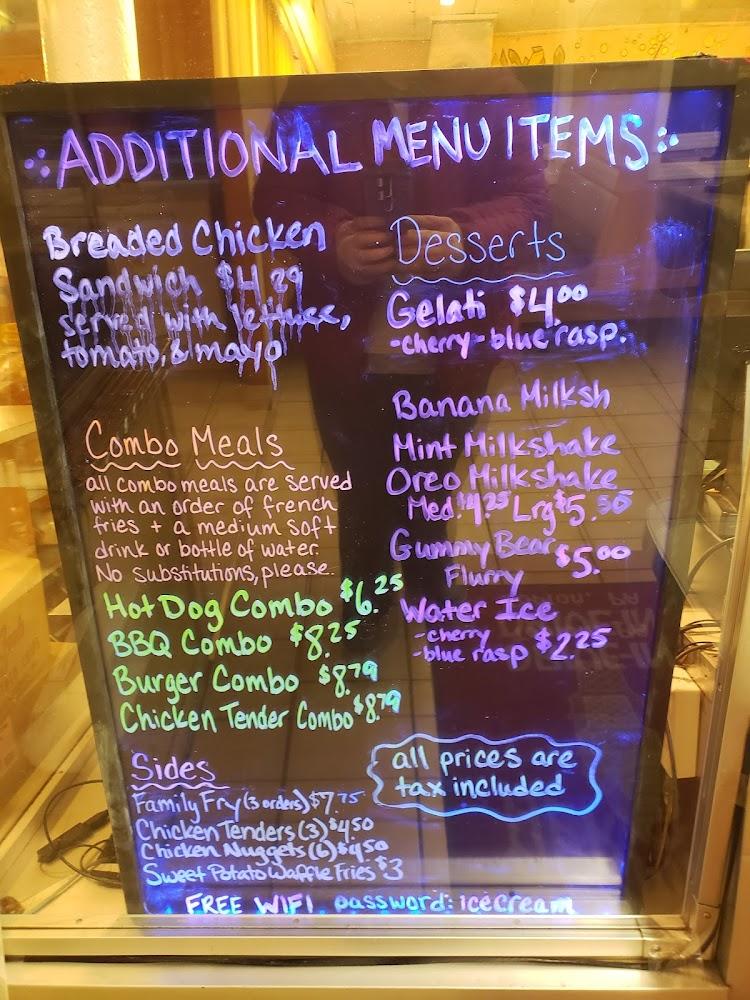 ADDITIONAL MENU ITEMS
Breaded Chicken
Sandwich $4.29
served with lettuce,
tomato, & mayo
Combo Meals
all combo meals are served
with an order of french
fries + a medium soft
drink or bottle of water.
No substitutions, please.
Hot Dog Combo $6.25
BBQ Combo $8.25
Burger Combo $8.79
Chicken Tender Combo $8.79
Sides
Family Fry (3 orders) $7.75
Chicken Tenders (3) $4.50
Chicken Nuggets (6) $4.50
Sweet Potato Waffle Fries $3
Desserts
Gelati $4.00
-cherry - blue rasp.
Banana Milksh
Mint Milkshake
Oreo Milkshake
Med. $4.25 Lrg $5.50
Gummy Bear
Flurry $5.00
Water Ice
-cherry
-blue rasp $2.25
all prices are
tax included
FREE WIFI password: icecream